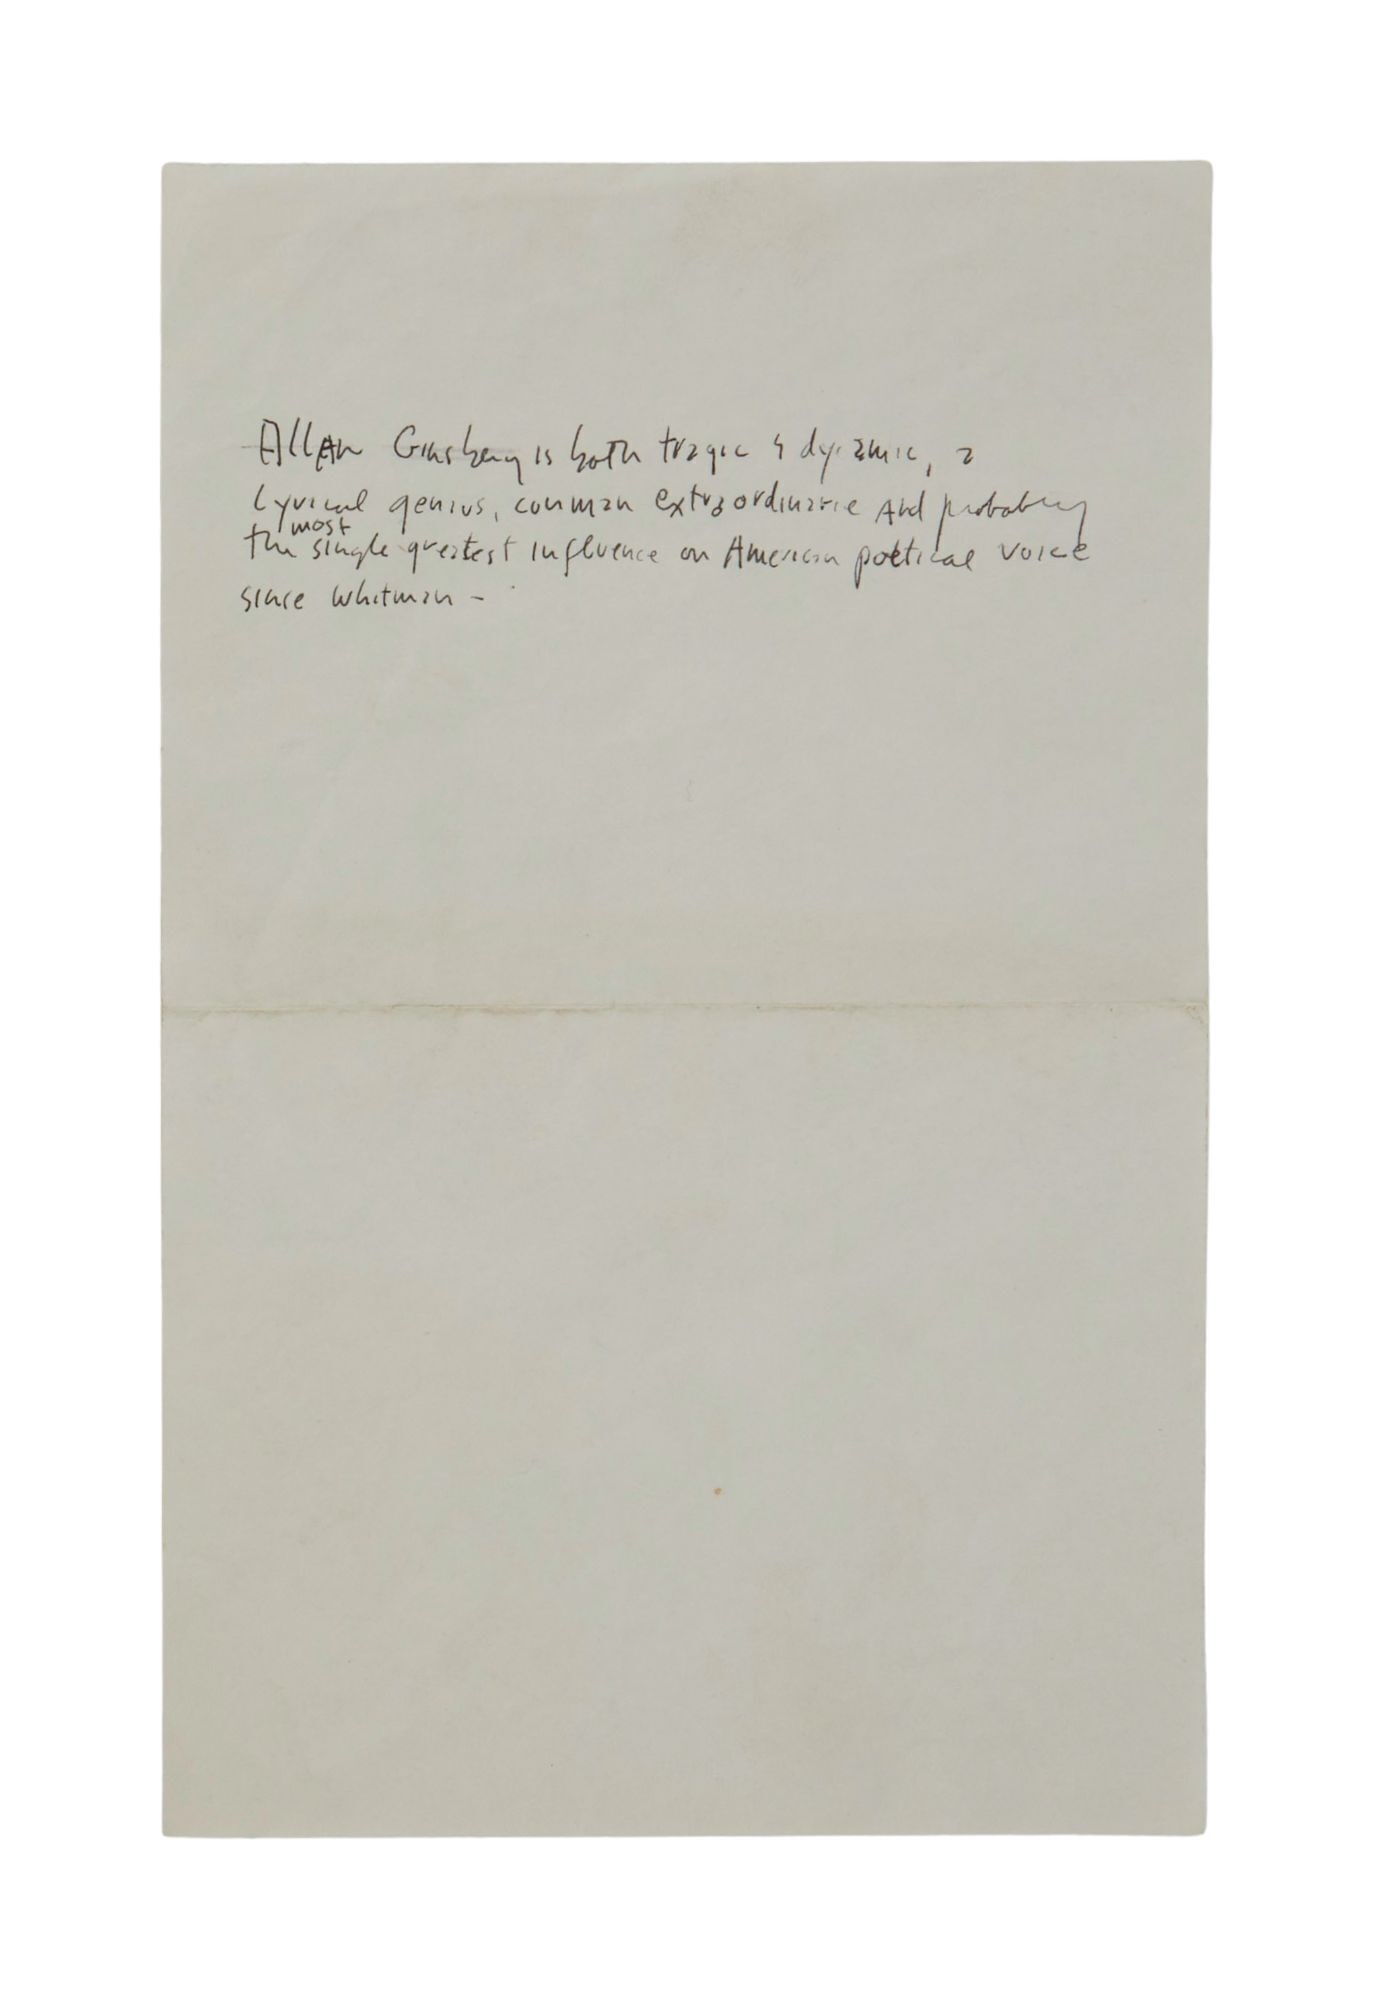 Allan Ginsberg is both tragic & dynamic, a
Lyrical genius, conman extraordinaire and probably
most
the single greatest influence on American poetical voice
since Whitman –